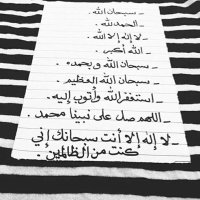 _ سبحان الله .
_ الحمد لله .
_ لا إله إلا الله .
_ الله أكبر .
_ سبحان الله وبحمده .
_ سبحان الله العظيم .
_ استغفر الله وأتوب إليه .
_ اللهم صل على نبينا محمد .
_ لا إله إلا أنت سبحانك إني
كنت من الظالمين .